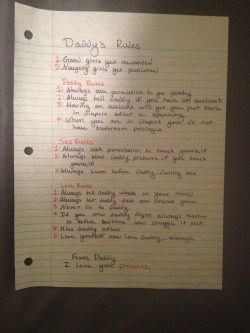 Daddy's Rules
1. Good girls get rewarded
2. Naughty girls get punished
Potty Rules
1. Always ask permission to go potty
2. Always tell daddy if you have an accident
3. Having an accident will get you put back
in diapers after a spanking
4. When you are in diapers you do not
have bathroom privileges
Sex Rules
1. Always ask permission to touch yourself
2. Always send daddy pictures if you touch
yourself
3. Always cum before daddy
Love Rules
1. Always tell daddy whats on your mind
2. Always let daddy
3. Never lie to daddy
4. If you and daddy fight always
before bedtime and snuggle it out
5. Kiss daddy often
6. Love yourself and love daddy, always
From Daddy
I love you princess